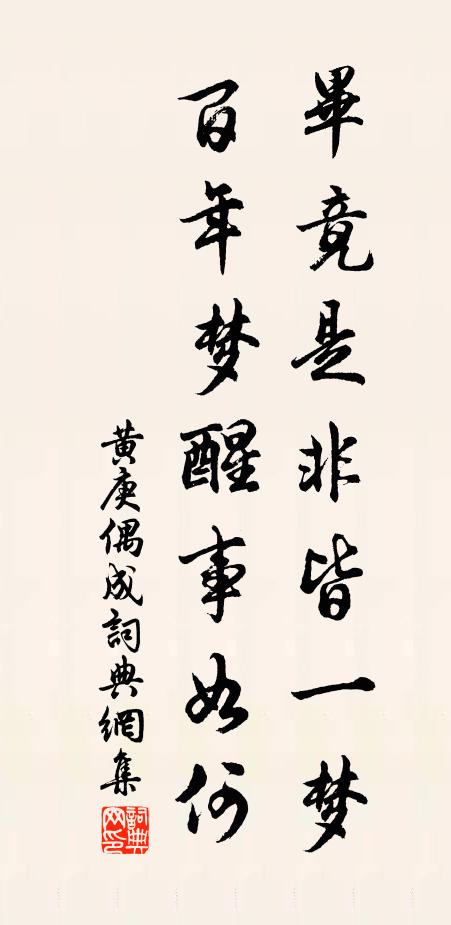 畢竟是非皆一梦
百年梦醒事如何
黄庚偶成詞典網集
詞典網印